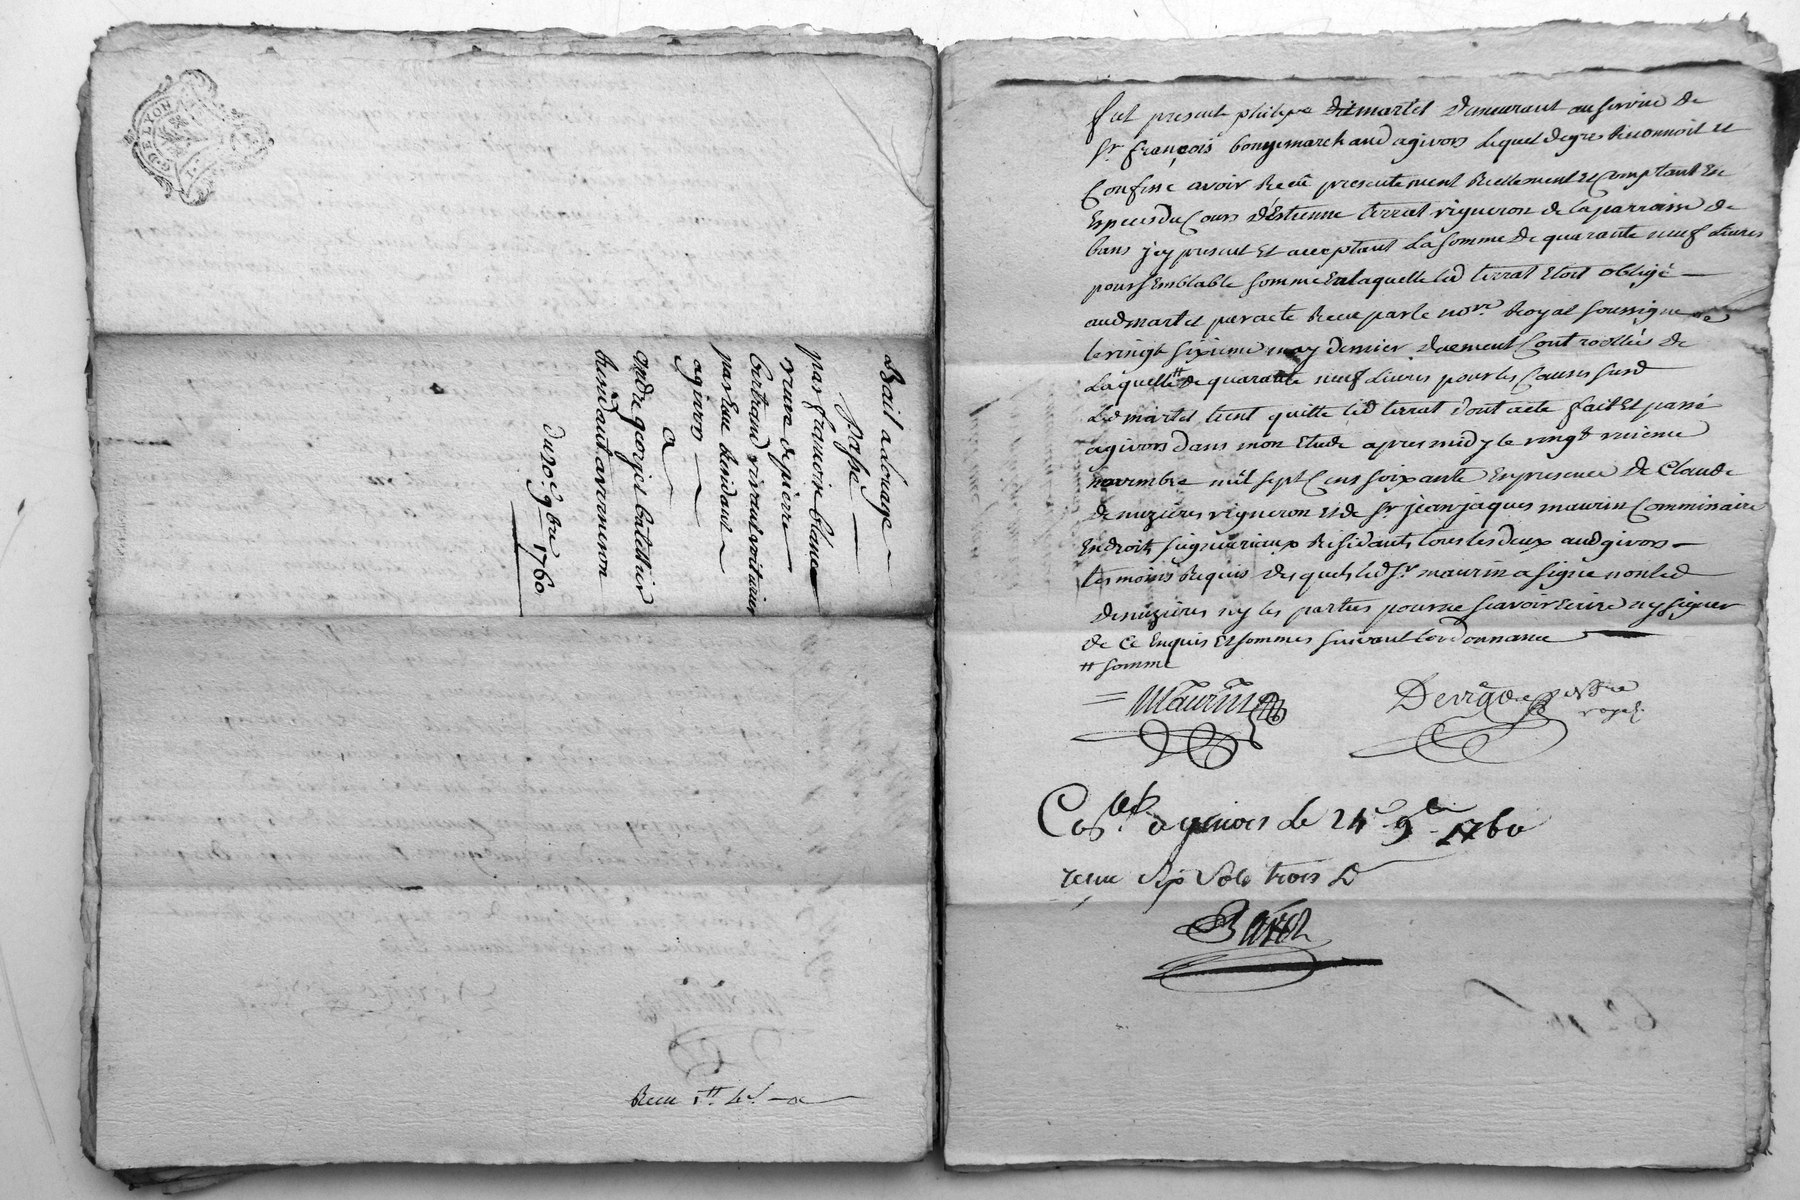 DE LYON
Bail a louage
passé
par francoise blanc
veuve de pierre
bertrand vivant voiturier
par eau residant
a givors
a
andre georjet batellier
residant a vernaison
du 20e 9bre 1760
Receu 1tt 4s
fut present philipe martel demeurant au service de
Sr françois bonyemarchand a givors lequel de gres reconnoit et
Confesse avoir receu presentement reellement et Comptant en
Especes du Cours d'Estienne terrat vigneron de la parroisse de
bans jcy present et acceptant la somme de quarante neuf livres
pour semblable somme en laquelle led terrat Etoit obligé
aud martel par acte Receu par le nore Royal soussigné
le vingt sixieme may dernier duement Controollés de
Laquelle tt de quarante neuf livres pour les Causes susd
Led martel tient quitte led terrat dont acte fait Et passé
a givors dans mon Etude apres midy le vingt
novembre mil sept Cens soixante En presence de Claude
demezieres vigneron et de Sr jean jaques maurin Commissaire
En droits seigneuriaux Residants tous les deux aud givors
tesmoins Requis desquels led Sr maurin a signé non led
demezieres ny les parties pour ne scavoir Ecrire ny signer
de ce Enquis Et sommes suivant lordonnance
tt somme
Maurin
royal
a givors le 24e 9bre 1760
receu six sols trois d